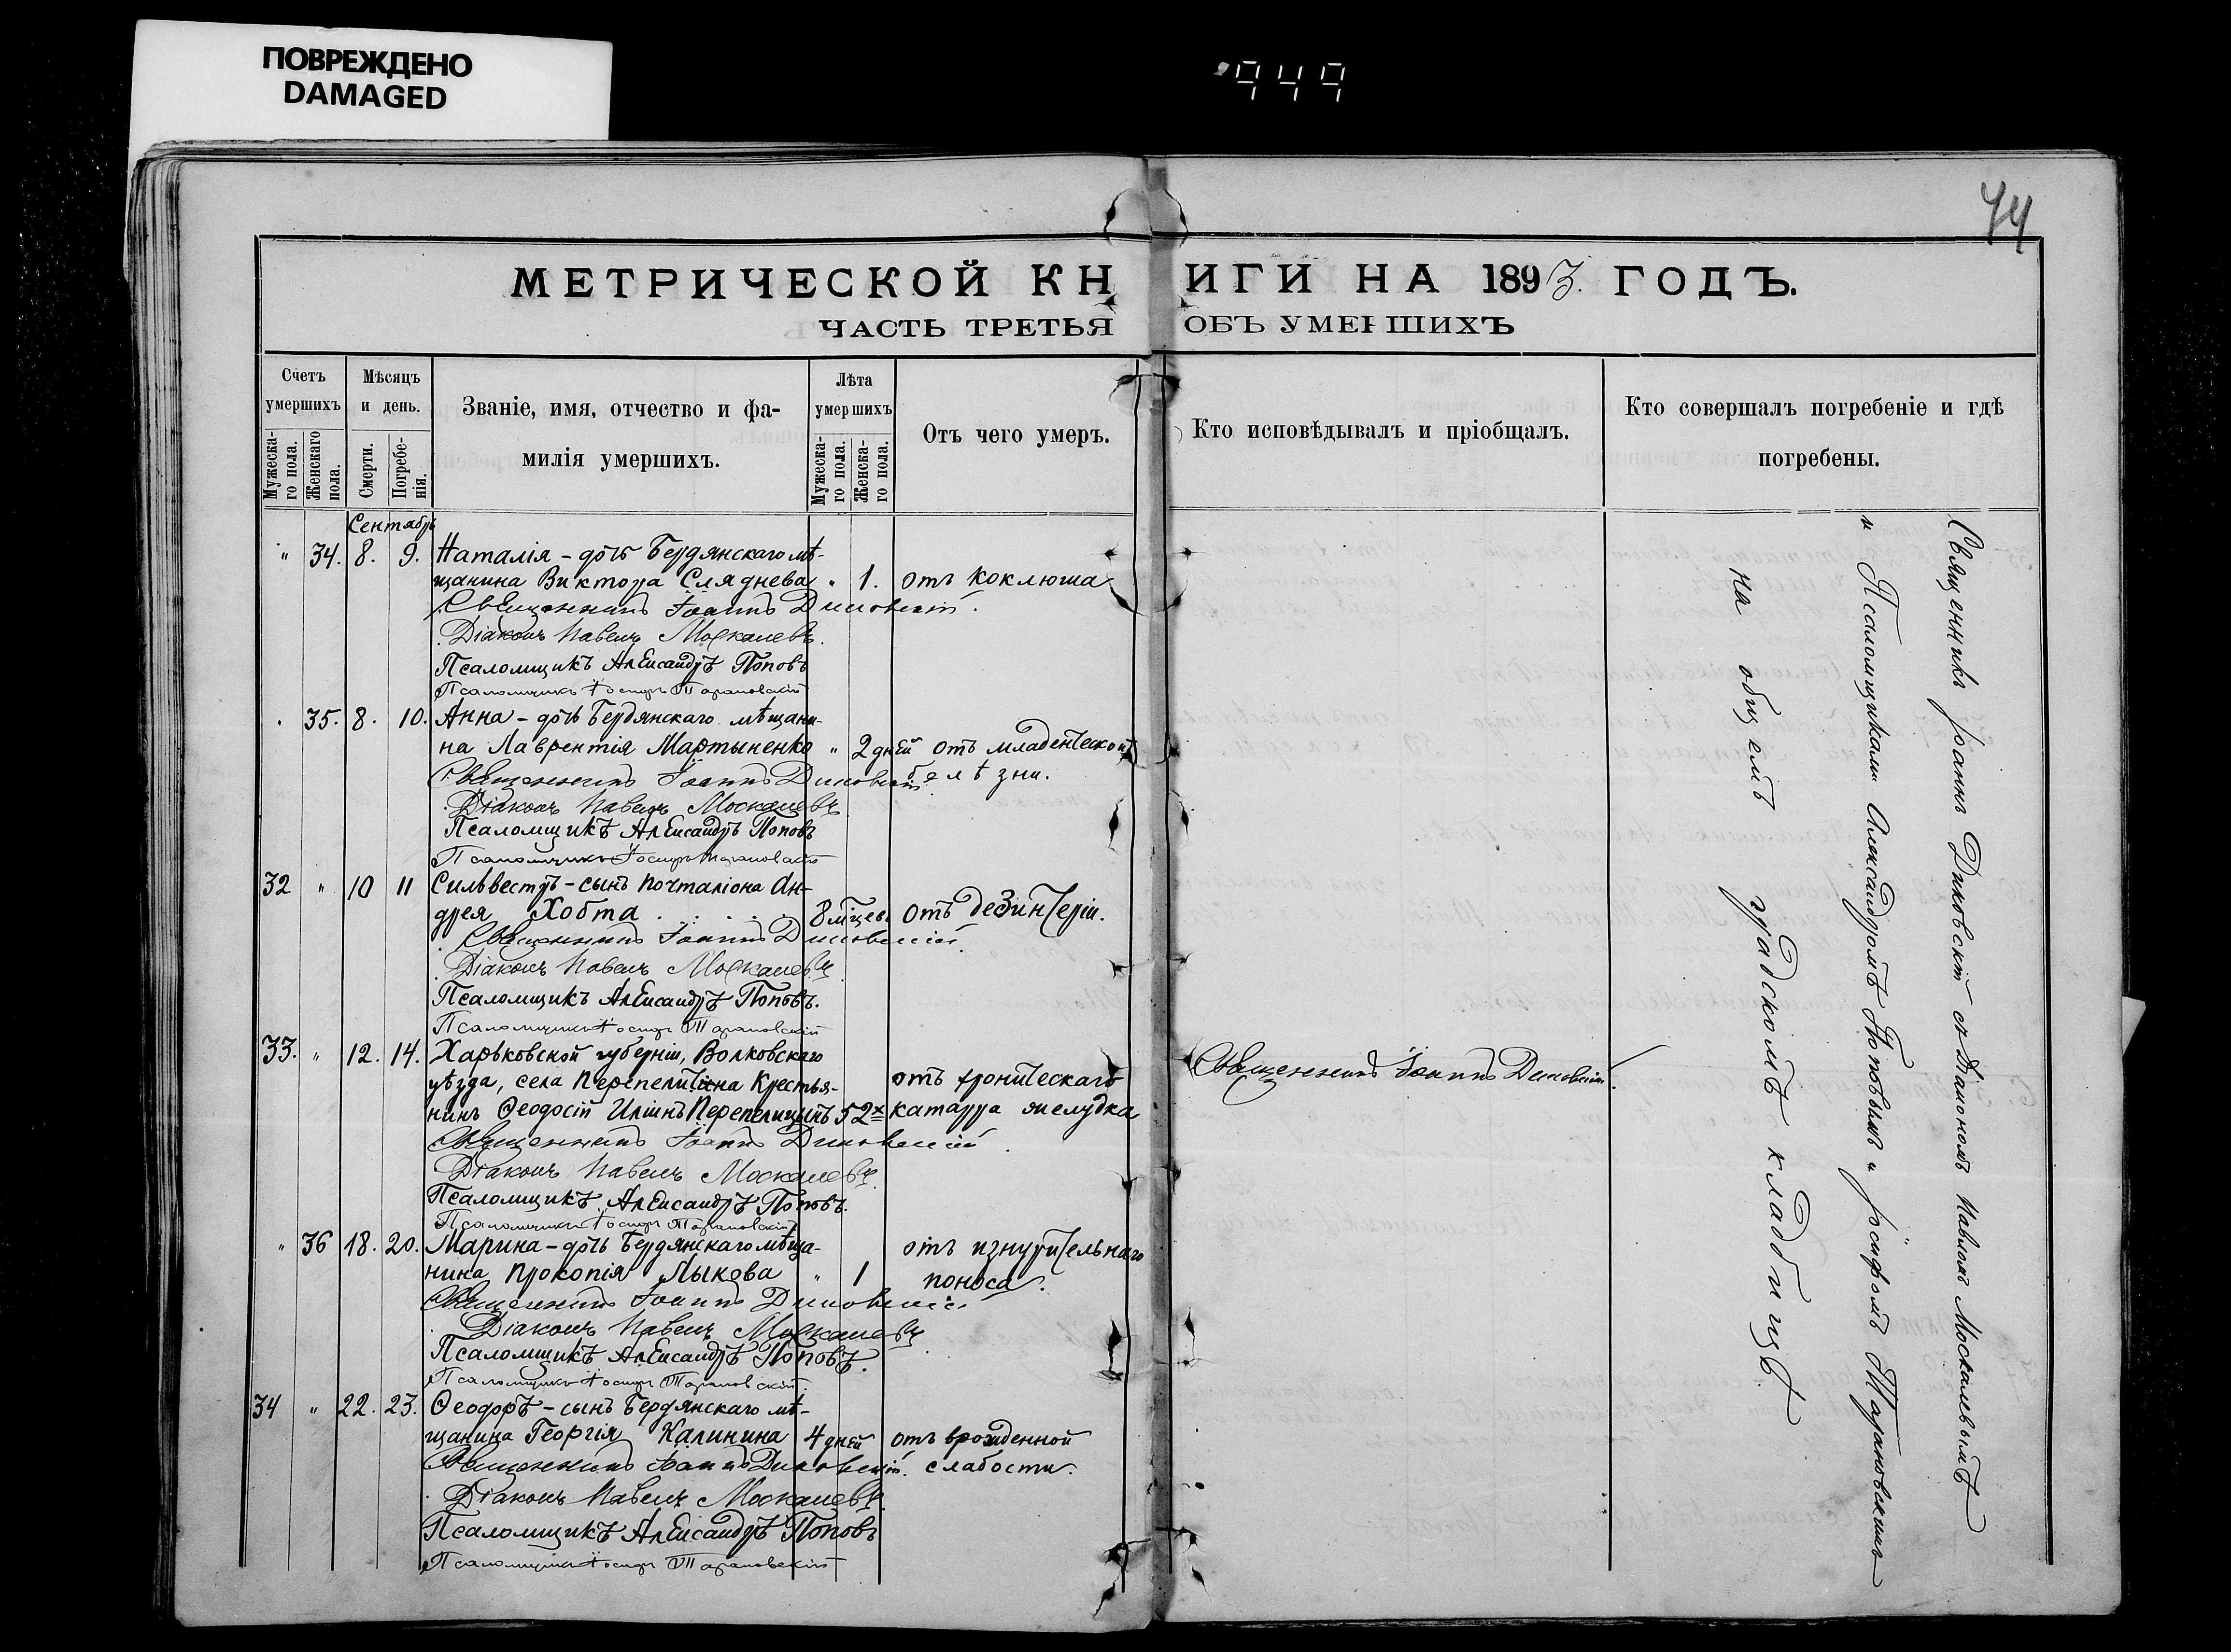 ПОВРЕЖДЕНО
DAMAGED
949
44
МЕТРИЧЕСКОЙ КНИГИ НА 1893 ГОДЪ.
ЧАСТЬ ТРЕТЬЯ ОБЪ УМЕРШИХЪ
Счетъ умершихъ
Мужеска-го пола.
Женскаго пола.
Мѣсяцъ и день.
Смерти.
Погребе-нія.
Званіе, имя, отчество и фа-
милія умершихъ.
Лѣта умершихъ
Мужеска-го пола.
Женска-го пола.
Отъ чего умеръ.
Кто исповѣдывалъ и пріобщалъ.
Кто совершалъ погребеніе и гдѣ
погребены.
Сентябрь
" 34. 8. 9. Наталія - дочь Бердянскаго мѣ-
щанина Виктора Сляднева " 1. отъ коклюша
Священникъ Іоаннъ Диковскій.
Діаконъ Павелъ Москалевъ.
Псаломщикъ Александръ Поповъ
Псаломщикъ Іосифъ Тарановскій
" 35. 8. 10. Анна - дочь Бердянскаго мѣщани-
на Лаврентія Мартыненко " 2 дней отъ младенческой
Священникъ Іоаннъ Диковскій болѣзни.
Діаконъ Павелъ Москалевъ
Псаломщикъ Александръ Поповъ
Псаломщикъ Іосифъ Тарановскій
32 " 10 11 Сильвестръ - сынъ почталіона Ан-
дрея Хобта . . . . . 8 мѣцевъ отъ дезинтеріи.
Священникъ Іоаннъ Диковскій
Діаконъ Павелъ Москалевъ
Псаломщикъ Александръ Поповъ.
Псаломщикъ Іосифъ Тарановскій
33. " 12. 14. Харьковской губерніи, Волковскаго
уѣзда, села Крестья- отъ хроническаго Священникъ Іоаннъ Диковскій.
нинъ Ѳеодосій Иліинъ Перепелицынъ 52 катарра желудка
Священникъ Іоаннъ Диковскій
Діаконъ Павелъ Москалевъ.
Псаломщикъ Александръ Поповъ.
Псаломщикъ Іосифъ Тарановскій
" 36 18. 20. Марина - дочь Бердянскаго мѣща- отъ изнурительнаго
нина Прокопія Лыкова " 1 поноса.
Священникъ Іоаннъ Диковскій
Діаконъ Павелъ Москалевъ
Псаломщикъ Александръ Поповъ.
Псаломщикъ Іосифъ Тарановскій.
34 " 22. 23. Ѳеодоръ - сынъ Бердянскаго мѣ-
щанина Георгія Калинина 4 дней отъ врожденной
Священникъ Іоаннъ Диковскій. слабости.
Діаконъ Павелъ Москалевъ.
Псаломщикъ Александръ Поповъ
Псаломщикъ Іосифъ Тарановскій
Священникъ Іоаннъ Диковскій съ Діакономъ Павломъ Москалевымъ
и Псаломщиками Александромъ Поповымъ и Іосифомъ Тарановскимъ
на общемъ градскомъ кладбищѣ